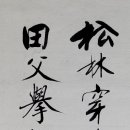 松林穿
田父舉